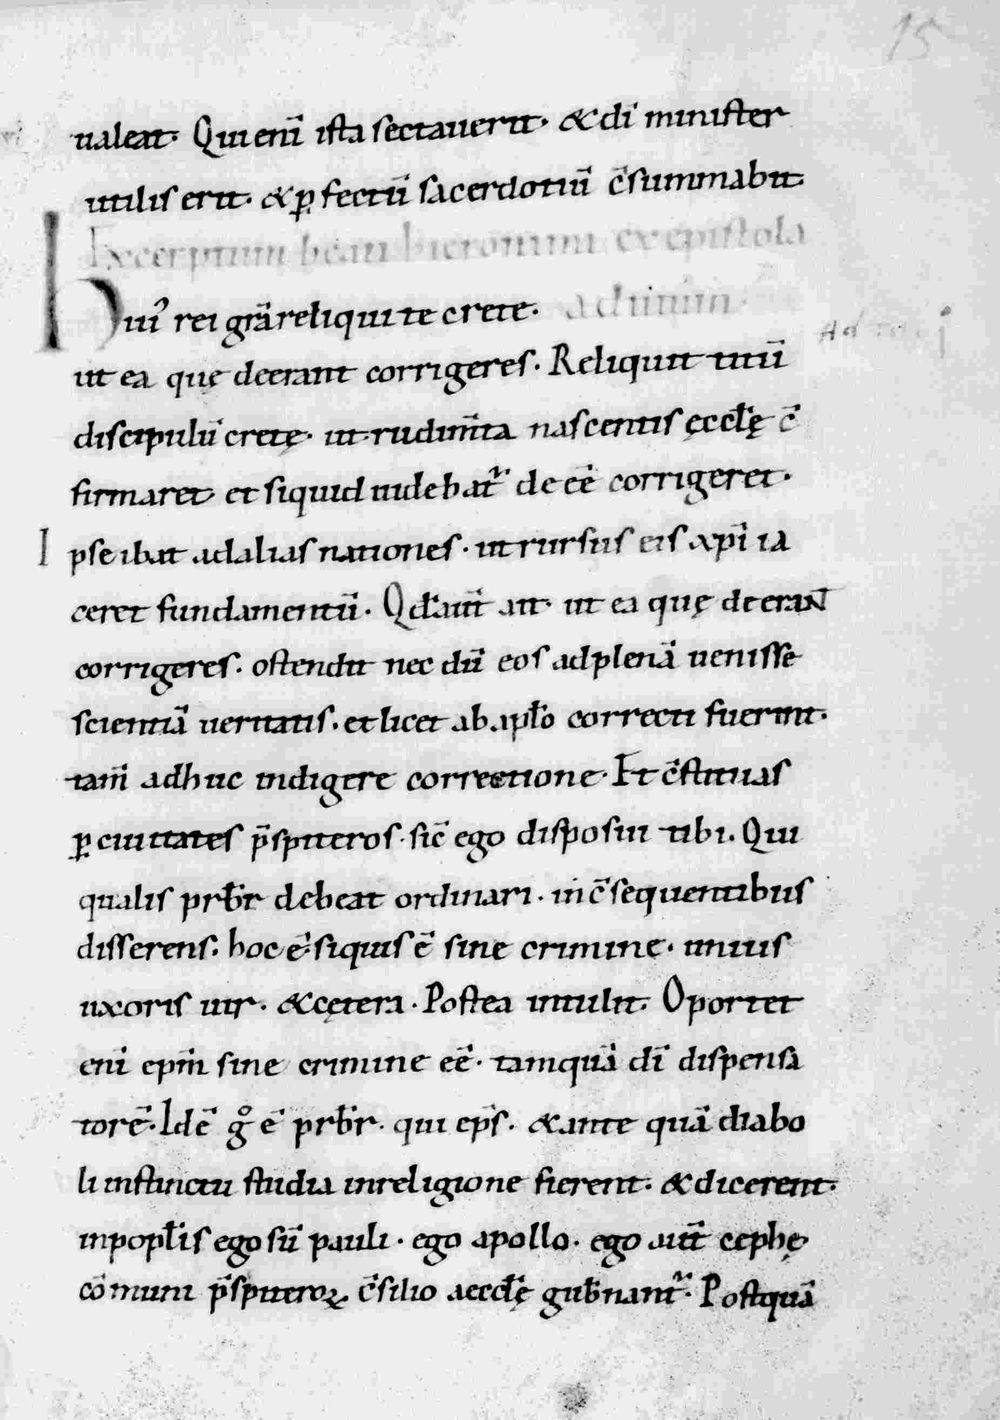 15
ualeat· Qui eni᷎ ista sectauerit· & di᷎ minister
utilis erit· & ꝑfectū sacerdotiū c̄summabit·
Excerptum beati hieronimi ex epistola
ad titum·
Hui᷒ rei grā reliqui te crete·
ut ea quę deerant corrigeres· Reliquit titū
discipulū cretę· ut rudim̄ta nascentis ęccłę c̄
firmaret· et siquid uidebat᷑ deeē corrigeret·
Ipse ibat ad alias nationes· ut rursus eis xp̄i ia
ceret fundamentū· Qđ aut̄ ait· ut ea quę deerant
corrigeres· ostendit nec dū eos ad plenā uenisse
scientiā ueritatis· et licet ab apło correcti fuerint·
tam̄ adhuc indigere correctione· Et c̄stituas
ꝑ ciuitates p̄sp̄iteros· sic̄ ego disposui tibi· Qui
qualis prƀr debeat ordinari· in c̄sequentibus
disserens· hoc ē siquis ē sine crimine· unius
uxoris uir· & cętera· Postea intulit· Oportet
enī epm̄ sine crimine eē· tamquā dī dispensa
torē· Idē gͦ ē prƀr· qui ep̄s· & ante quā diabo
li instinctu studia in religione fierent· & dicerent·
in popłis ego sū pauli· ego apollo· ego aut̄ cephę
cōmuni p̄sp̄iteroꝝ c̄silio aeccłę guƀnant᷑· Postquā